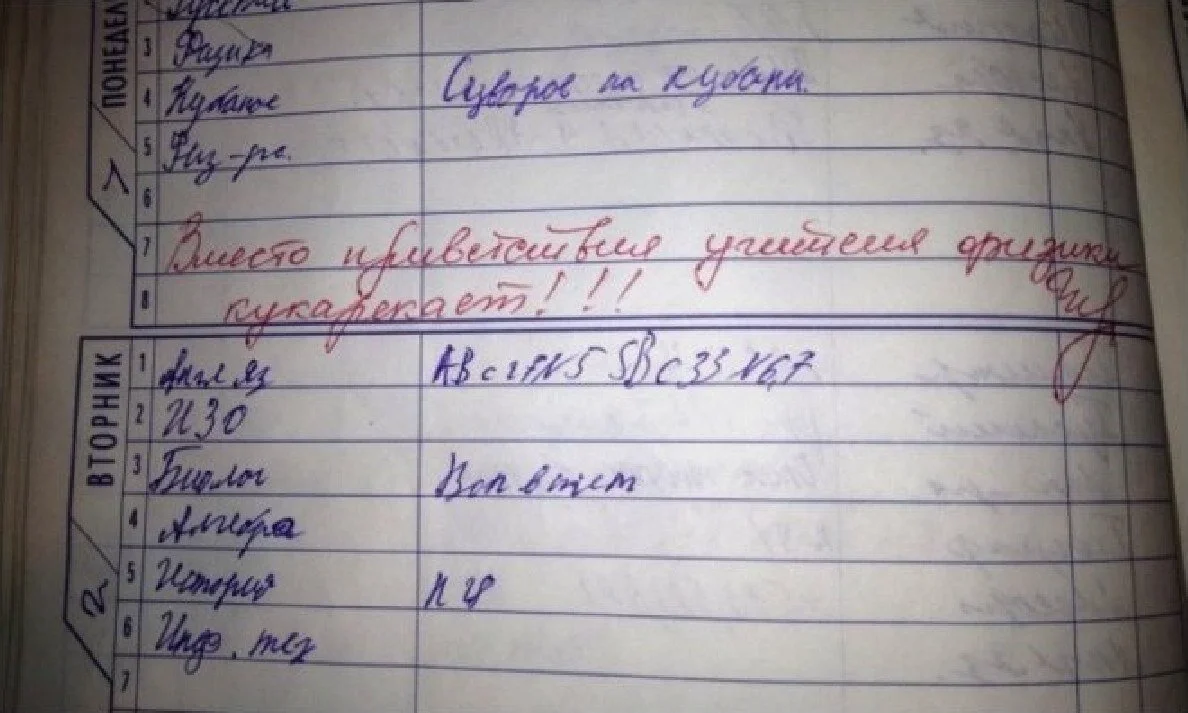 ПОНЕДЕЛ
Русский
3 Физика
4 Кубанов Суворов на кубани.
5 Физ-ра.
6
7 Вместо приветствия учителя физики
8 кукарекает!!!
ВТОРНИК
1 Англ яз АВ с N5 SB с 33 N6,7
2 ИЗО
3 Биолог Воп в тет
4 Алгебра
5 История П
2
6 Инф. тех
7